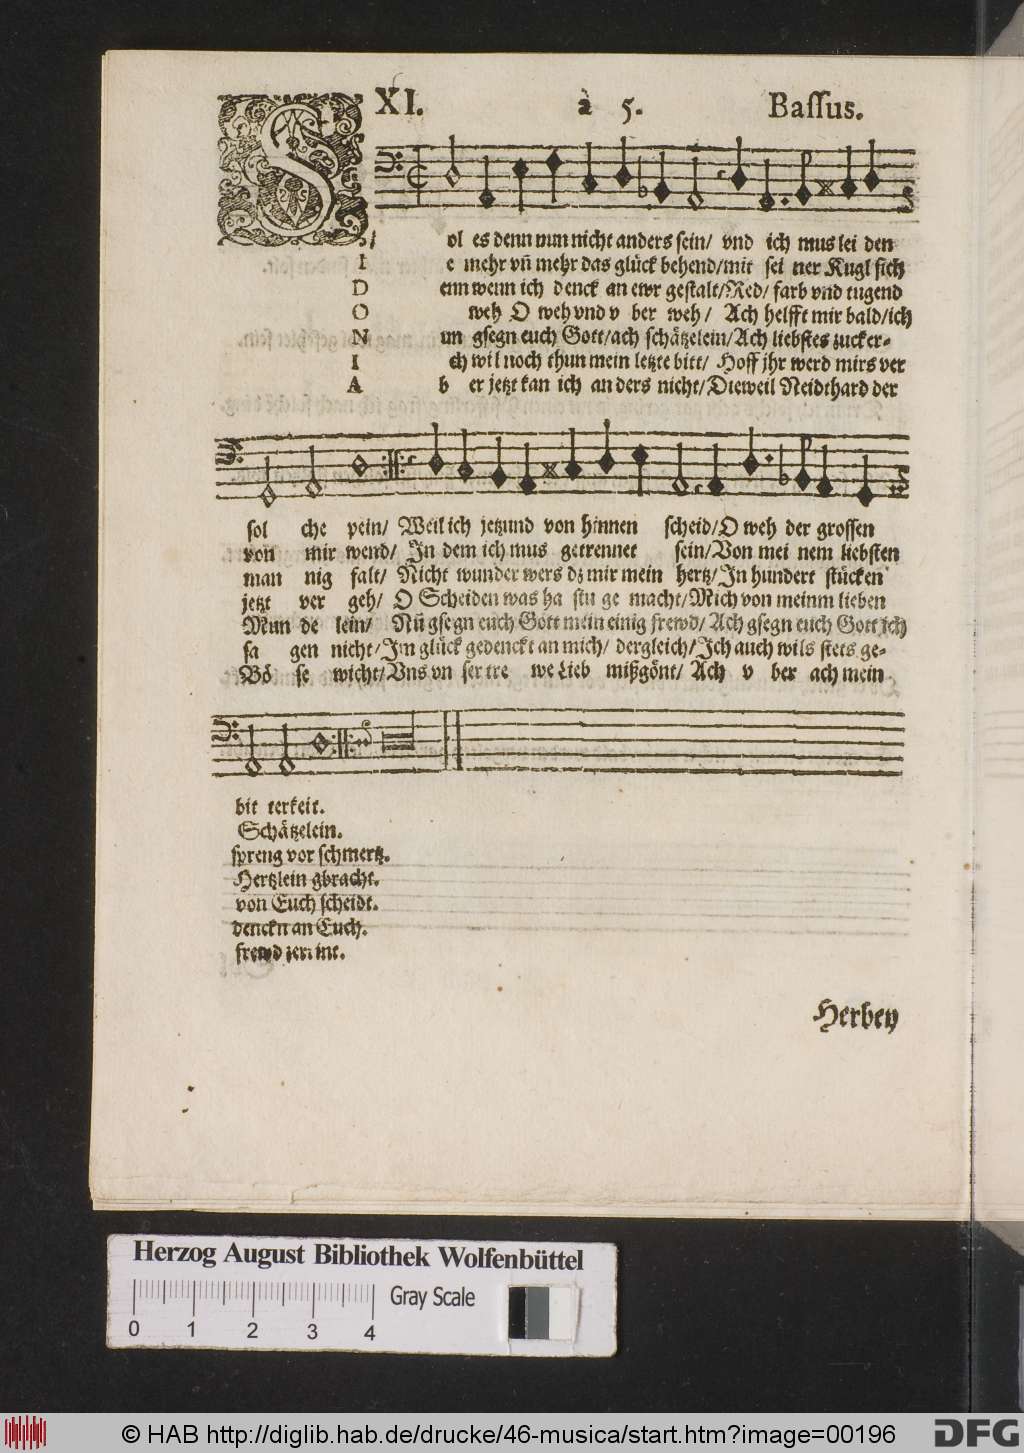 XI. à 5. Bassus.
S ol es denn nun nicht anders sein/ vnd ich mus lei den
I e mehr vñ mehr das glück behend/mit sei ner Kugl sich
D enn wenn ich denck an ewr gestalt/Red/ farb vnd tugend
O weh O weh vnd v ber weh/ Ach helfft mir bald/ich
N un gsegn euch Gott/ach schätzelein/Ach liebstes zucker-
I ch wil noch thun mein letzte bitt/ Hoff jhr werd mirs ver
A b er jetzt kan ich an ders nicht/Dieweil Neidthard der
sol che pein/ Weil ich jetzund von hinnen scheid/O weh der grossen
von mir wend/ In dem ich mus getrennet sein/Von mei nem liebsten
man nig falt/ Nicht wunder wers dz mir mein hertz/In hundert stücken
jetzt ver geh/ O Scheiden was ha stu ge macht/Mich von meinm lieben
Mun de lein/ Nũ gsegn euch Gott mein einig frewd/Ach gsegn euch Gott ich
sa gen nicht/Im glück gedenckt an mich/ dergleich/Ich auch wils stets ge-
Bö se wicht/Vns vn ser tre we Lieb mißgönt/ Ach v ber ach mein
bit terkeit.
Schätzelein.
spreng vor schmertz.
Hertzlein gbracht.
von Euch scheidt.
denckn an Euch.
frewd zerrint.
Herbey
Herzog August Bibliothek Wolfenbüttel
Gray Scale
0 1 2 3 4
© HAB http://diglib.hab.de/drucke/46-musica/start.htm?image=00196
DFG